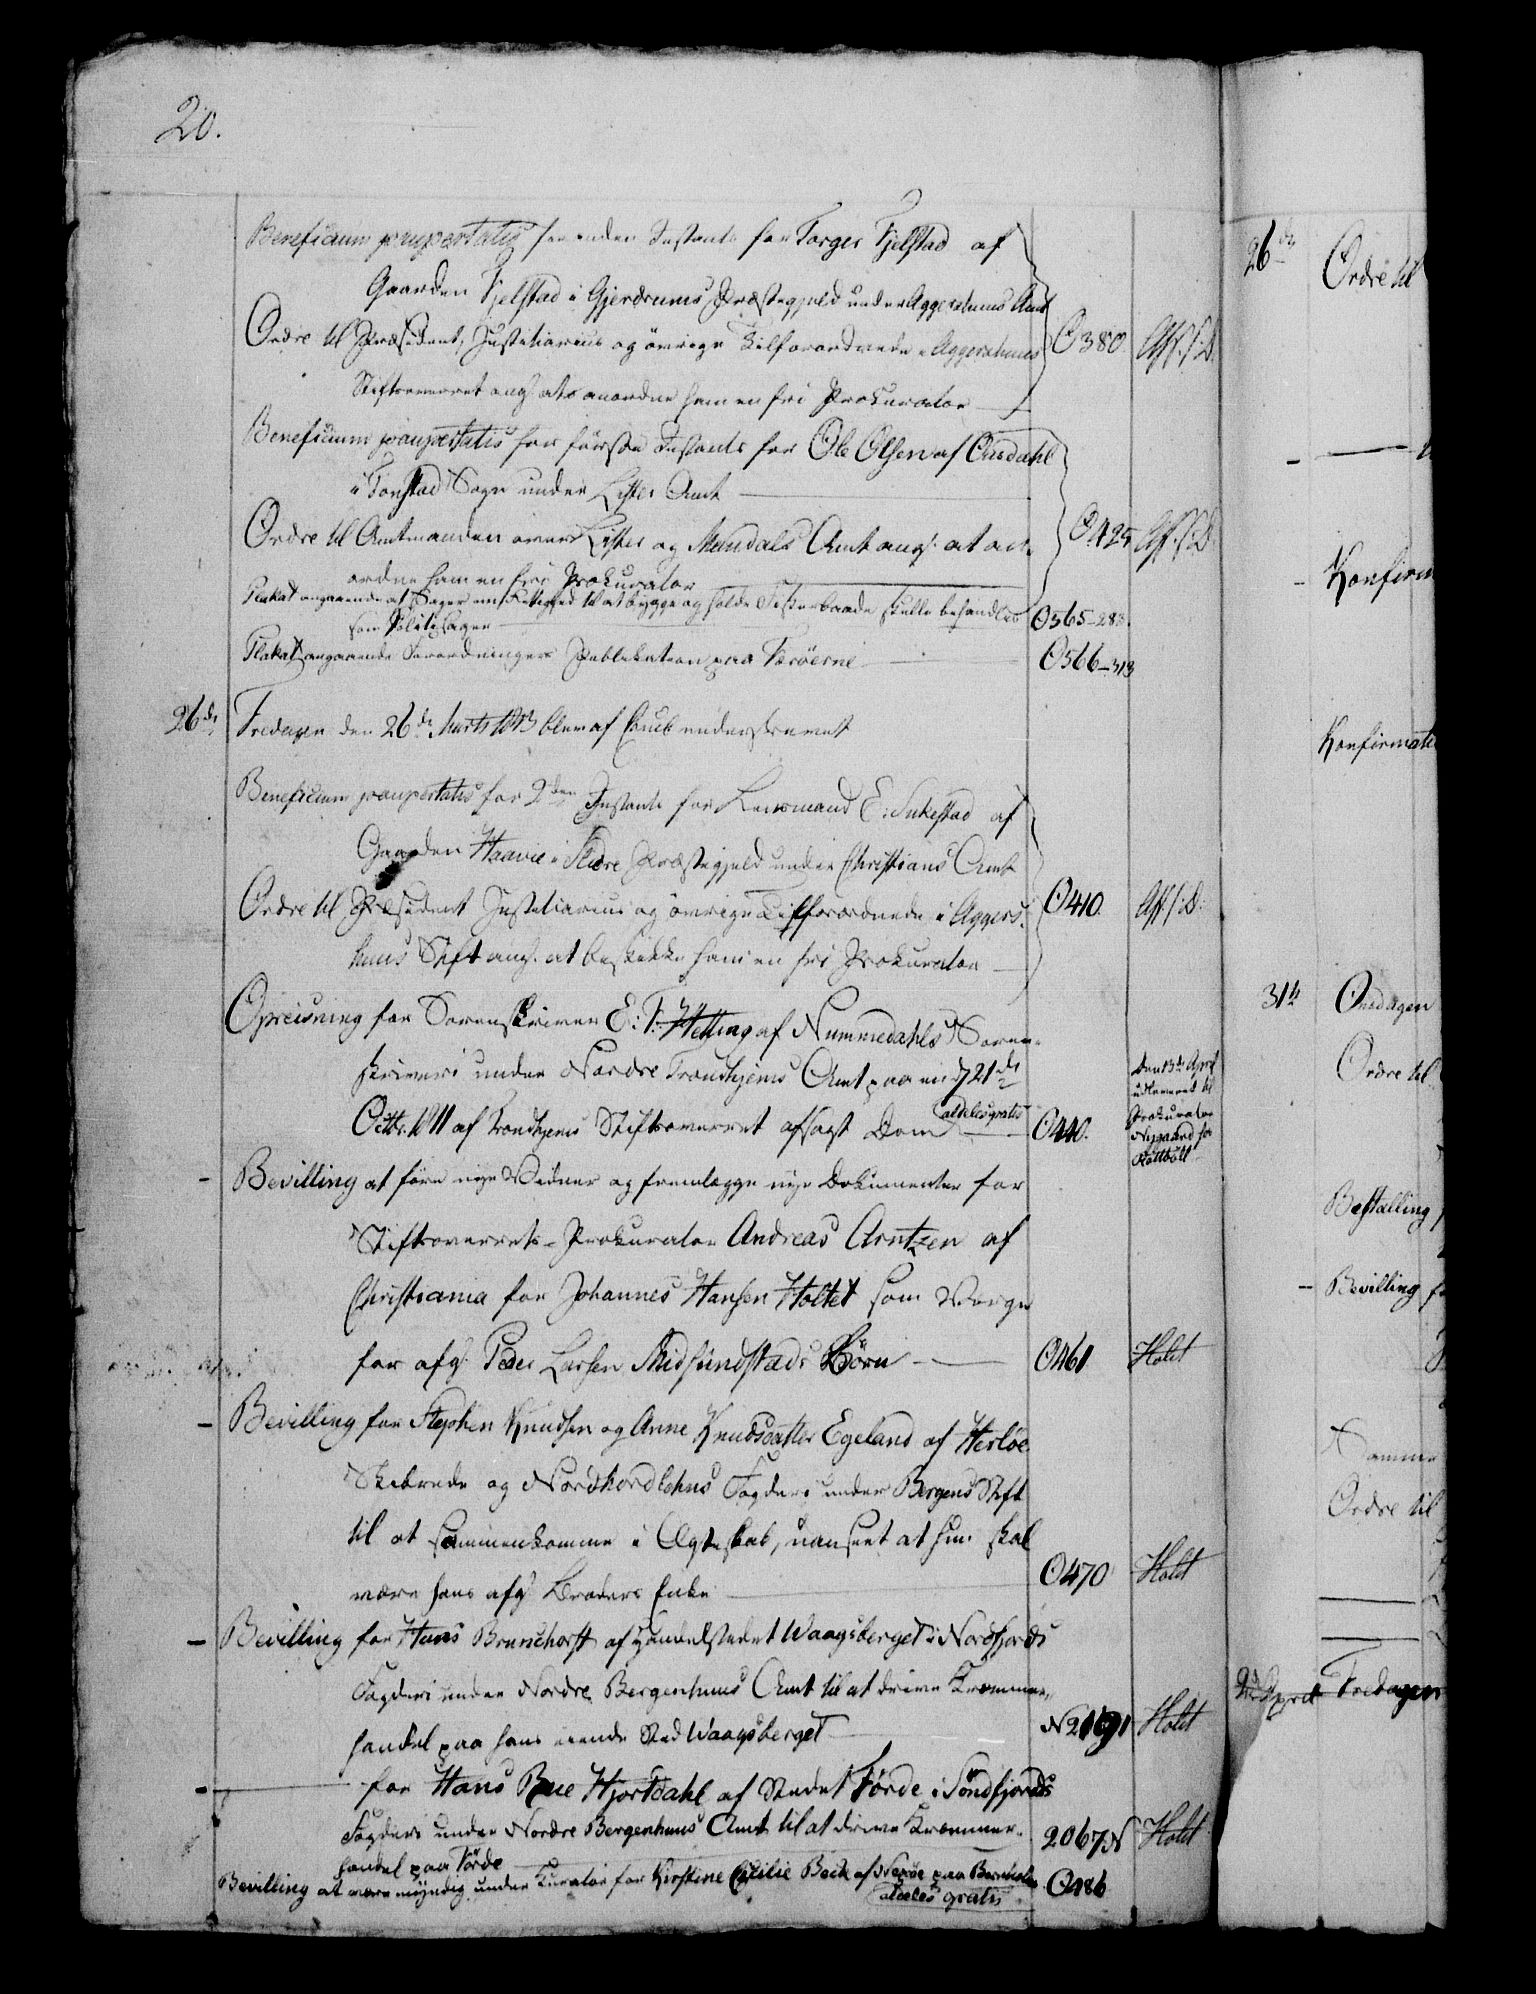 20.
Beneficium paupertatis for anden Instants for Torger Fjelstad af
Gaarden Fjelstad i Gjerdrums Præstegjeld under Aggershuus Amt
Ordre til Præsident, Justitiarius og övrige Tilforordnede i Aggershuus
Stiftsoverret ang. at anordne ham en fri Prokurator
O 380 Aff. f. D.
Beneficium paupertatis for förste Instants for Ole Olsen af Ousdahl
i Tonstad Sogn under Lister Amt
Ordre til Amtmanden over Lister og Mandals Amt ang. at an-
ordne ham en fri Prokurator
O 425 Aff. f. D.
Plakat angaaende at Sager om Rettighed til at bygge og holde Fiskerbaade skulle behandles
som Politiesager
O 565-283.
Plakat angaaende Forordningers Publikation paa Færöerne
O 566-313
26de Fredagen den 26de Marts 1813 blev af underskrevet
Beneficium paupertatis for 2den Instants for Lensmand E: af
Gaarden Haavie i Slidre Præstegjeld under Christians Amt
Ordre til Præsident Justitiarius og övrige Tilforordnede i Aggers-
huus Stift ang. at beskikke ham en fri Prokurator
O 410. Aff. f. D.
Opreisning for Sorenskriver E: F: Hetting af Nummedahls Soren-
skriveri under Nordre Trondhjems Amt paa en d. 21de
Octbr. 1811 af Trondhjems Stiftsoverret afsagt Dom aldeles gratis
O 440.
Den 13de April
udleveret til
Prokurator
Nygaard for
- Bevilling at före nye Vidner og fremlægge nye Dokumenter for
Stiftsoverrets-Prokurator Andreas Arntzen af
Christiania for Johannes Hansen Holtet som Værge
for afg. Peder Larsen Midsundstads Börn
O 461 Holst
- Bevilling for Stephen Knudsen og Anne Knudsdatter Egeland af Herlöe
Skibrede og Nordhordlehns Fogderi under Bergens Stift
til at sammenkomme i Ægteskab, uanseet at hun skal
være hans afg. Broders Enke
O 470 Holst
- Bevilling for Hans Brunchorst af Handelstedet Waagsberget i Nordfjords
Fogderi under Nordre Bergenhuus Amt til at drive Kræmmer-
handel paa hans eiende Sted Waagsberget
N 2191 Holst
- for Hans Bue Hjortdahl af Stedet Förde i Söndfjords
Fogderi under Nordre Bergenhuus Amt til at drive Kræmmer-
handel paa Förde
2067 N Holst
Bevilling at være myndig under Kurator for Kirstine Cecilie Beck af Nexöe paa Bornholm
aldeles gratis
O 486
26de Ordre til
Konfirm
Konfirmati
31te Onsdagen
Ordre til
Bestalling
- Bevilling
Samme
Ordre til
2d April Fredagen